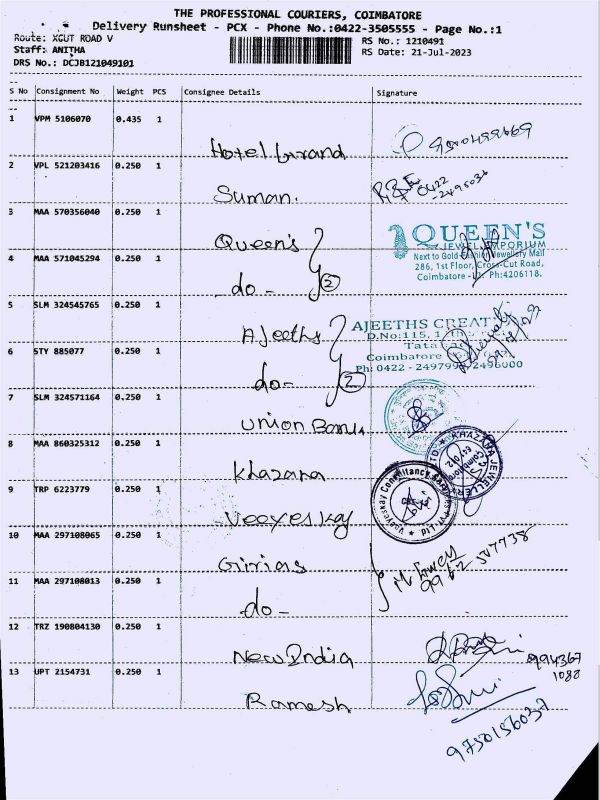 THE PROFESSIONAL COURIERS, COIMBATORE
Delivery Runsheet - PCX - Phone No.:0422-3505555 - Page No.:1
Route: XCUT ROAD V
RS No.: 1210491
Staff: ANITHA
RS Date: 21-Jul-2023
DRS No.: DCJB121049101
S No Consignment No Weight PCS Consignee Details Signature
1 VPM 5106070 0.435 1
Hotel Grand
2 VPL 521203416 0.250 1
Suman.
0422
-2495036
3 MAA 570356040 0.250 1
Queen's
QUEEN'S
JEWEL EMPORIUM
Next to Gold Fashion Jewellery Mall
286, 1st Floor, Cross-Cut Road,
Coimbatore - 12. Ph:4206118.
4 MAA 571045294 0.250 1
-do- 2
5 SLM 324545765 0.250 1
Ajeeths
AJEETHS
D.No:115,
Tata
Coimbatore
Ph: 0422 - 2497999, 2496000
6 STY 885077 0.250 1
do- 2
7 SLM 324571164 0.250 1
Union Bank
8 MAA 860325312 0.250 1
Khazana
KHAZANA JEWELLERY
Coimbatore
9 TRP 6223779 0.250 1
Veeyeskay
Veeyeskay Consultancy
10 MAA 297108065 0.250 1
Girias
11 MAA 297108013 0.250 1
do-
12 TRZ 190804130 0.250 1
New India
994367
1088
13 UPT 2154731 0.250 1
Ramesh
9750156037